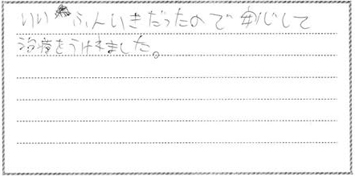 いいふんいきだったので安心して
治療をうけれました。